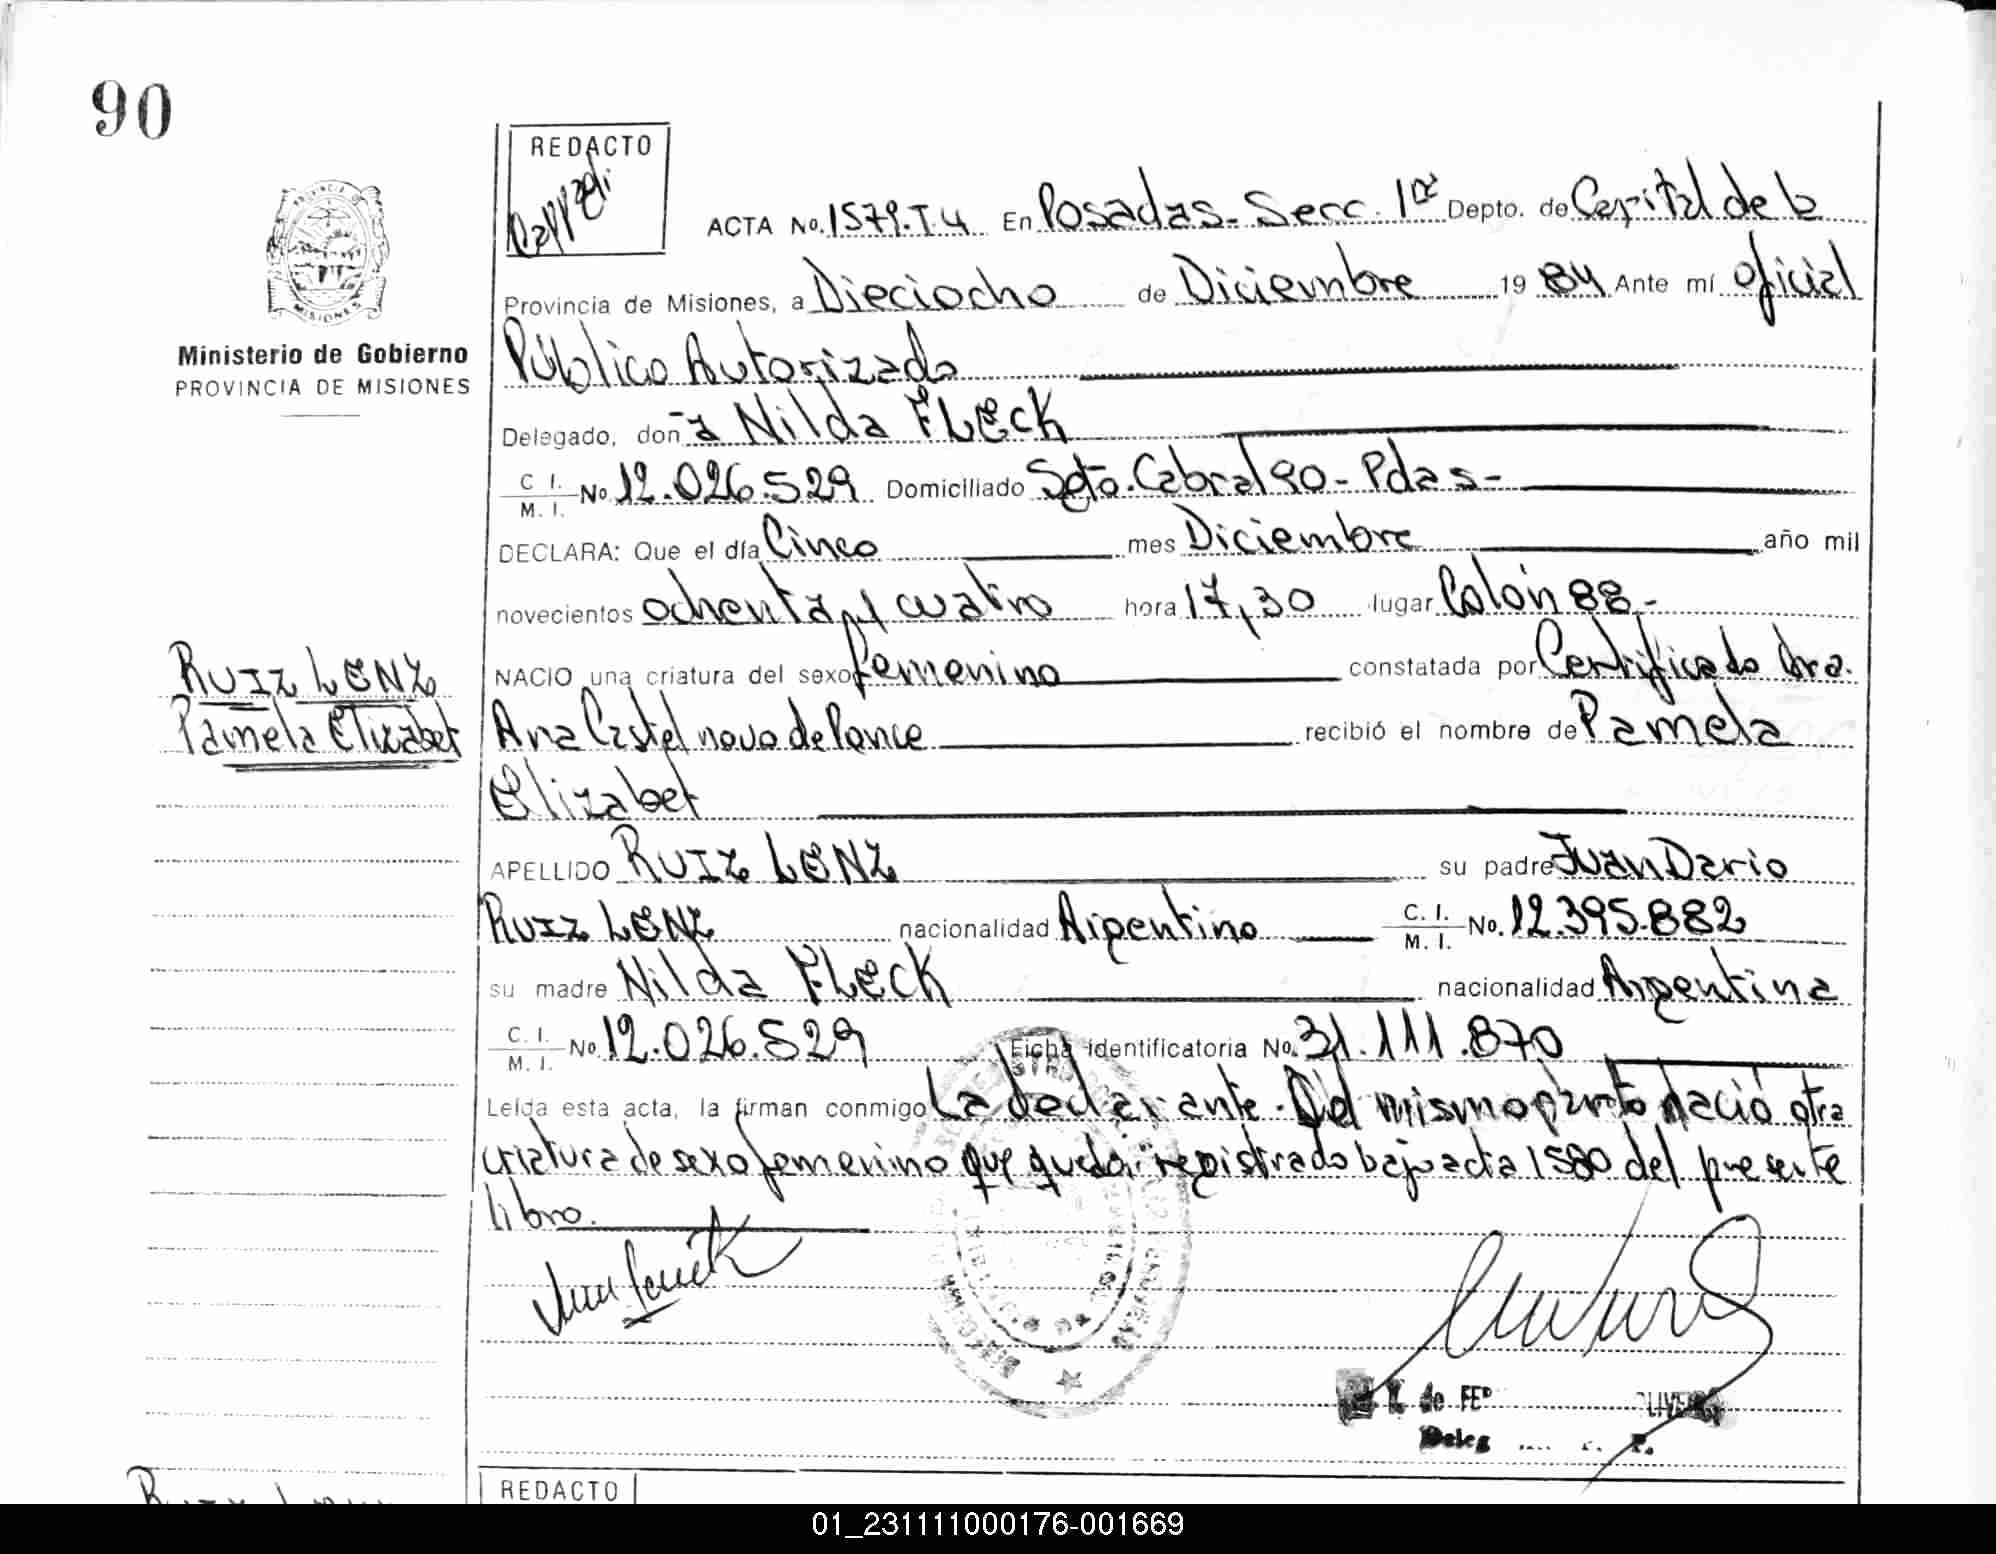 90
REDACTO
ACTA No. 1579.T.4 En Posadas - Secc. 1ra Depto. de Capital de la
Provincia de Misiones, a Dieciocho de Diciembre 19 84 Ante mí oficial
Ministerio de Gobierno
PROVINCIA DE MISIONES
Público Autorizado
Delegado, don ~a Nilda FLECK
C. I. M. I. No 12.026.529 Domiciliado Sgto. Cabral 90 - Pdas -
DECLARA: Que el día Cinco mes Diciembre año mil
novecientos ochenta y cuatro hora 17,30 lugar Colón 88 -
NACIO una criatura del sexo femenino constatada por Certificado Dra.
RUIZ LENZ
Pamela Elizabet
Ana Castelnovo de Ponce recibió el nombre de Pamela
Elizabet
APELLIDO RUIZ LENZ su padre Juan Dario
RUIZ LENZ nacionalidad Argentino C. I. M. I. No. 12.395.882
su madre Nilda FLECK nacionalidad Argentina
C. I. M. I. No 12.026.529 Ficha identificatoria No. 31.111.870
Leída esta acta, la firman conmigo La declarante. Del mismo parto nació otra
criatura de sexo femenino que queda registrado bajo acta 1580 del presente
libro.
de
Deleg
REDACTO
01_231111000176-001669